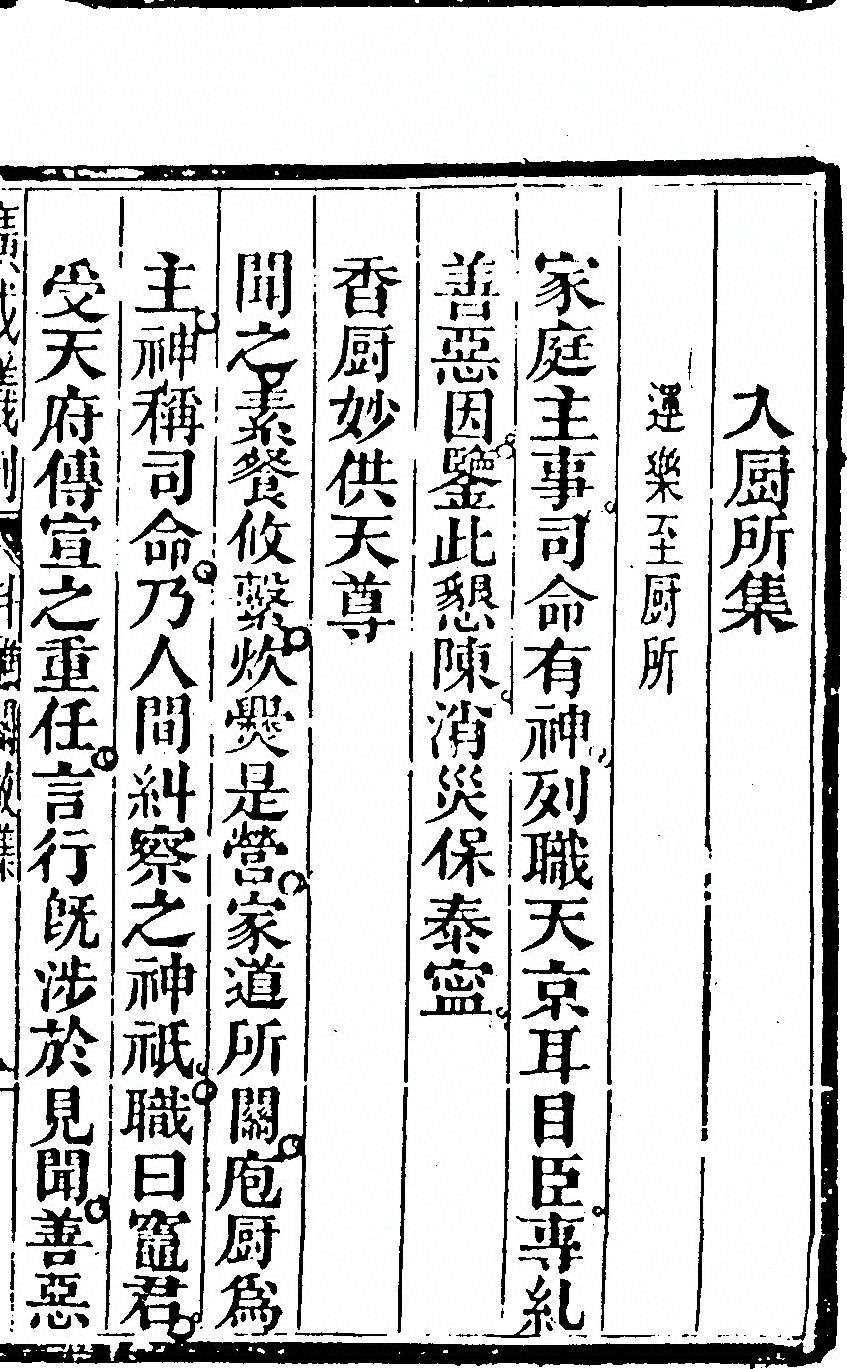 入厨所集
運樂至厨所
家庭主事司命有神列職天京耳目臣專糺
善惡因鑒此懇陳消災保泰寧
香厨妙供天尊
聞之素餐攸繫炊爨是營家道所關庖厨爲
主神稱司命乃人間糾察之神祇職曰竈君
受天府傳宣之重任言行旣涉於見聞善惡